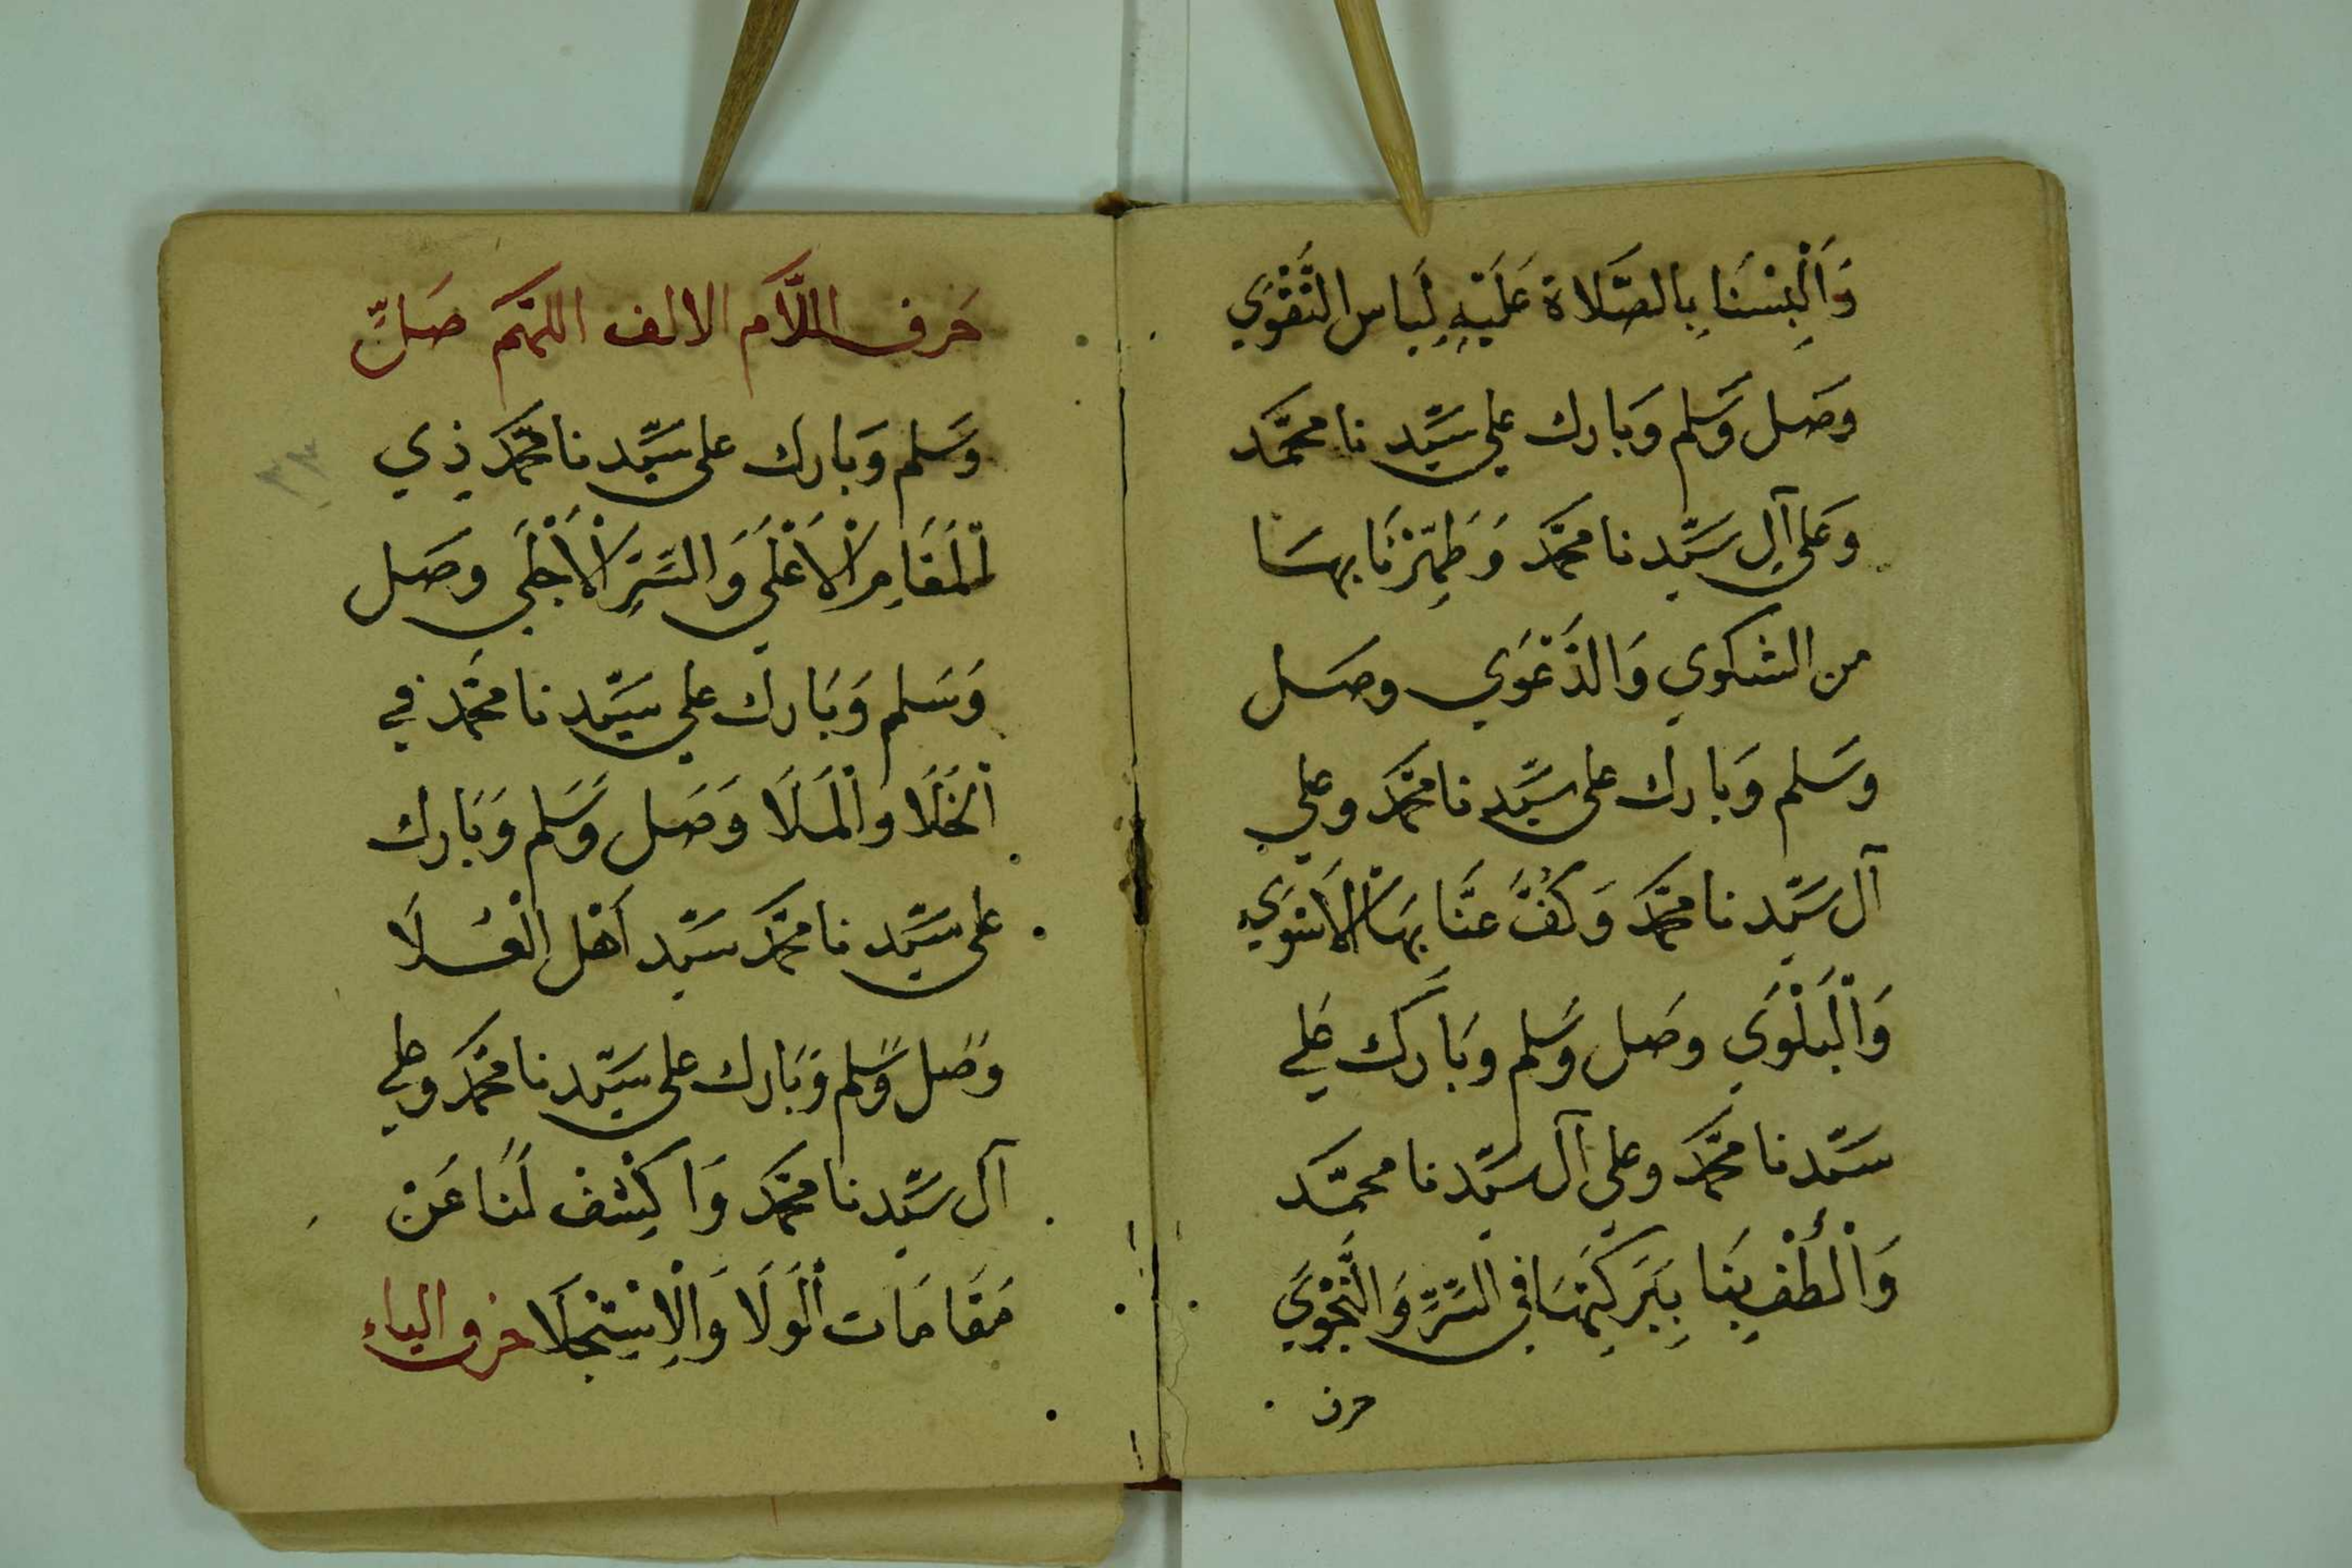 وَأَلْبِسْنَا بِالصَّلَاة عَلَيْهِ لِبَاس التَّقْوَي
وصَل وَسَلم وَبَارك علي سَيِّد نا محمَّد
وَعَلى آلِ سَيِّد نا محمَّد وَطَهِّرْنَا بهَا
من الشكوي وَالدَّعْوَي وصَل
وسَلم وَبارك على سَيِّد نا محمَّد وعلي
آل سَيِّد نا محمَّد وَكُفَّ عَنَّا بهَا الْأَسْوَي
وَالْبَلْوَي وصَل وَسَلم وبَارك عَلي
سَيِّد نا محمَّد وعلى آل سَيِّد نا محمَّد
وَالْطُفْ بِنَا بِبَركَتِهَا في السِّرِّ وَالنَّجْوَي
حرف
حَرف اللَّام الالف اللهم صَلِّ
وَسَلم وَبَارك على سَيِّد نا محمَّد ذِي
الْمَقَامِ الْأَعْلَي وَالسِّرِّ الْأَجْلَي وصَل
وَسَلم وَبَارك علي سَيِّد نا محمَّد في
الْخَلَا وَالْمَلَا وَصَل وَسَلم وَبَارك
على سَيِّد نا محمَّد سَيِّد أَهْل الْعُلَا
وصَل وَسَلم وَبَارك على سَيِّد نا محمَّد وعلي
آل سَيِّد نا محمَّد وَاكْشِفْ لَنَا عَنْ
مَقَامَات الْوَلَا وَالْاِسْتِجْلَا حرف الياء